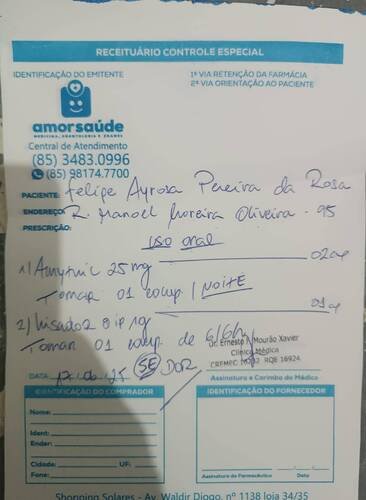 RECEITUÁRIO CONTROLE ESPECIAL
IDENTIFICAÇÃO DO EMITENTE
1ª VIA RETENÇÃO DA FARMÁCIA
2ª VIA ORIENTAÇÃO AO PACIENTE
amorsaúde
MEDICINA, ODONTOLOGIA E EXAMES
Central de Atendimento
(85) 3483.0996
(85) 98174.7700
PACIENTE: Felipe Ayrosa Pereira da Rosa
ENDEREÇO: R. Manoel Moreira Oliveira - 95
PRESCRIÇÃO:
uso oral
1) Amytril 25mg 02
Tomar 01 comp / NOITE
2) Lisador 1g 01
Tomar 01 comp. de 6/6h
SE DOR
Dr. Ernesto Mourão Xavier
Clínica Médica
CREMEC RQE 16924
DATA
Assinatura e Carimbo do Médico
IDENTIFICAÇÃO DO COMPRADOR
IDENTIFICAÇÃO DO FORNECEDOR
Nome:
Ident:
Ender:
Cidade: UF:
Fone:
Assinatura do Farmacêutico Data
Shopping Solares - Av. Waldir Diogo, nº 1138 loja 34/35